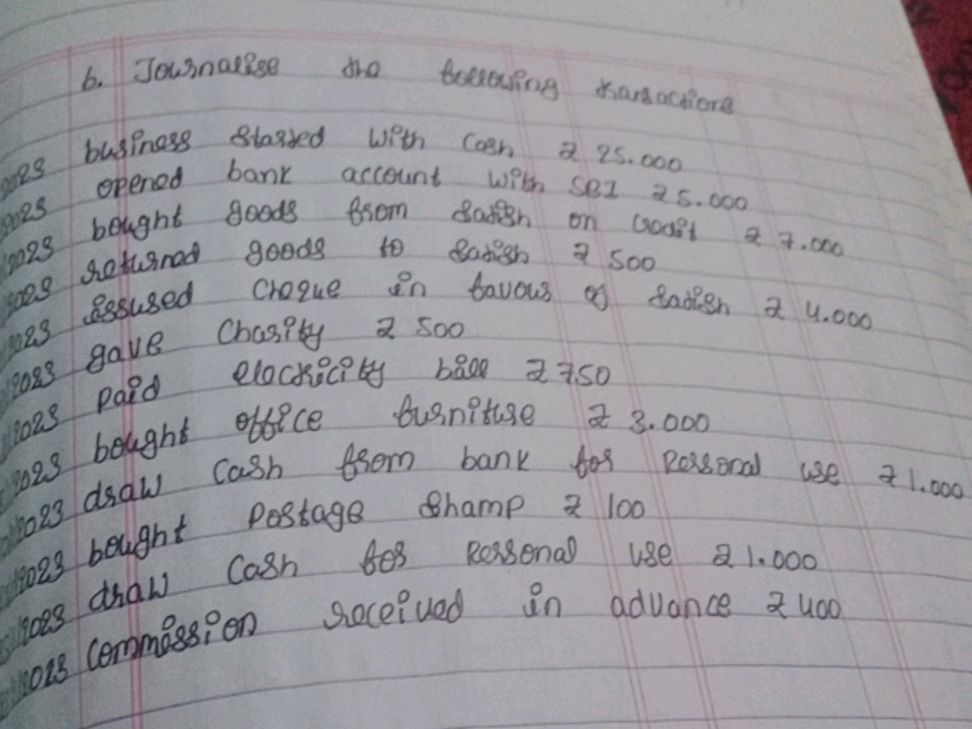 6. Journalise the following transactions
2023 business started with cash ₹ 25.000
2023 opened bank account with SBI ₹ 5.000
2023 bought goods from Satish on credit ₹ 7.000
2023 returned goods to Satish ₹ 500
2023 issused cheque in favour of Satish ₹ 4.000
2023 gave Charity ₹ 500
2023 paid electricity bill ₹ 750
2023 bought office furniture ₹ 3.000
2023 draw cash from bank for Personal use ₹ 1.000
2023 bought Postage Shamp ₹ 100
2023 draw cash for Personal use ₹ 1.000
2023 commission received in advance ₹ 400